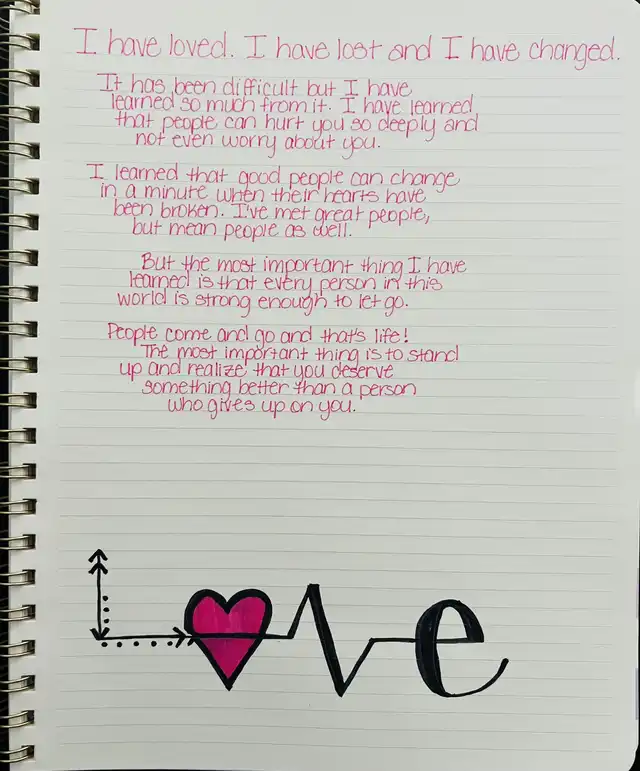 I have loved. I have lost and I have changed.
It has been difficult but I have
learned so much from it. I have learned
that people can hurt you so deeply and
not even worry about you.
I learned that good people can change
in a minute when their hearts have
been broken. I've met great people,
but mean people as well.
But the most important thing I have
learned is that every person in this
world is strong enough to let go.
People come and go and that's life!
The most important thing is to stand
up and realize that you deserve
something better than a person
who gives up on you.
Love